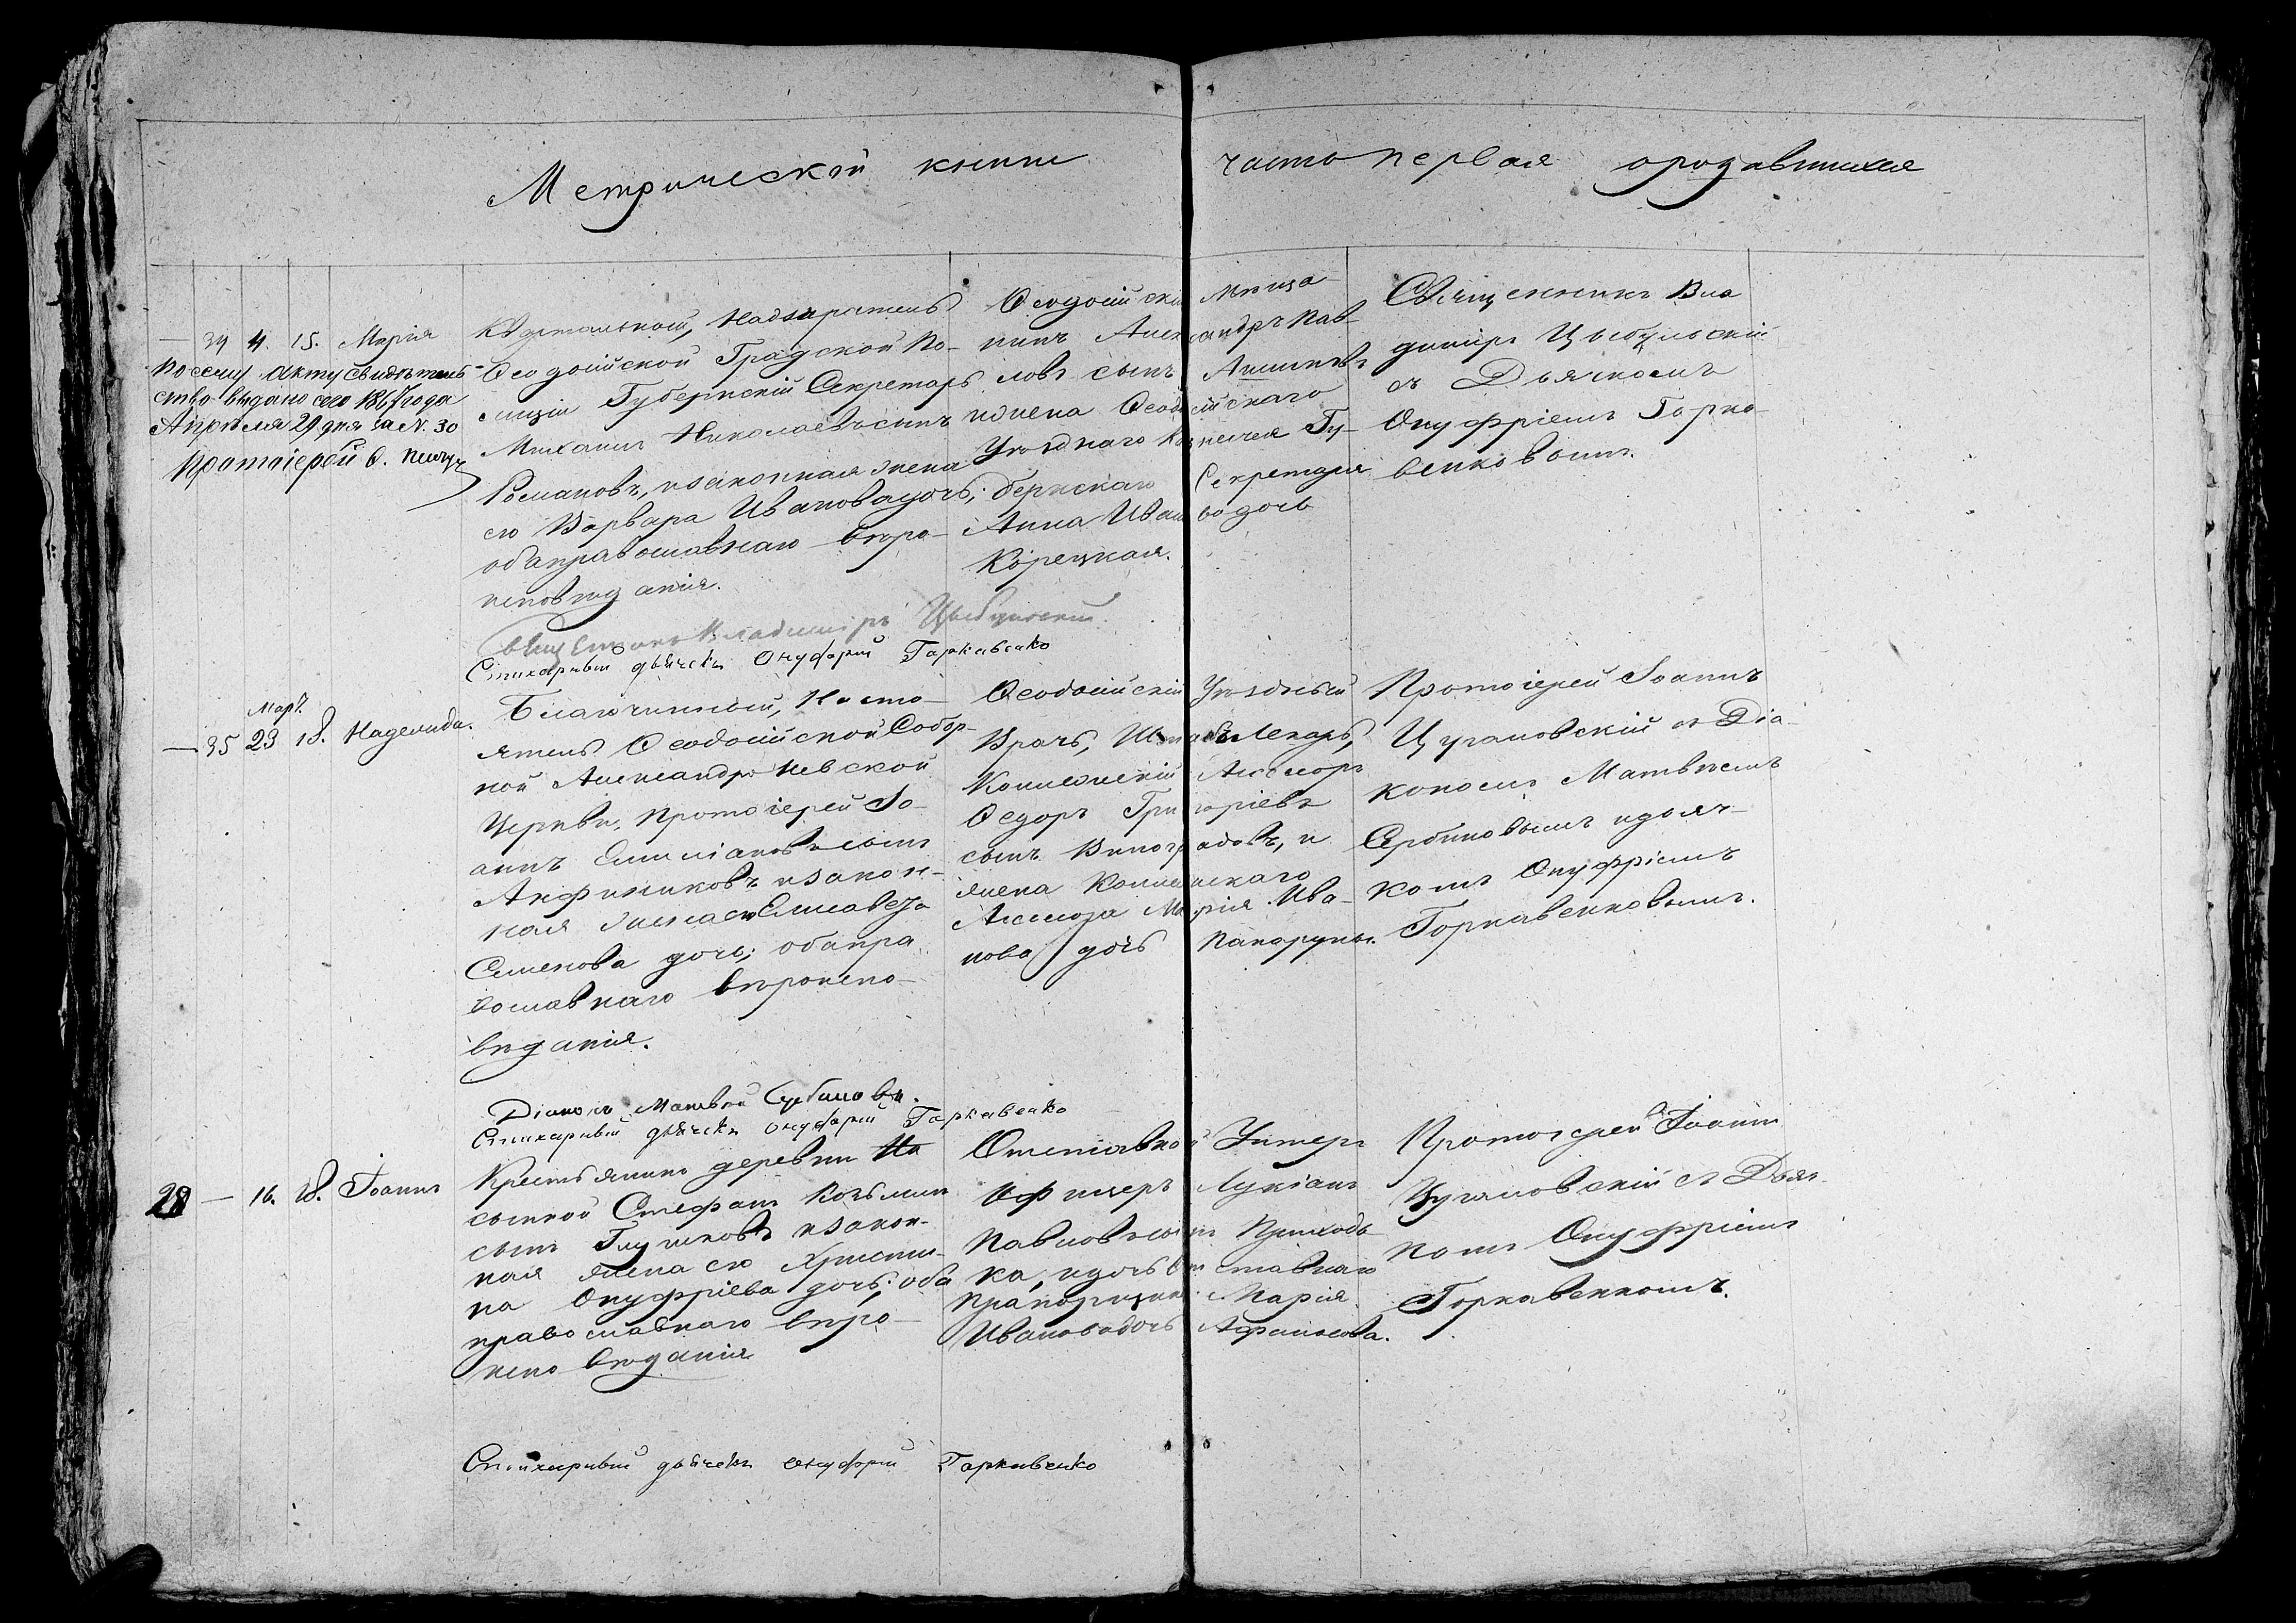 Метрической книги часть первая о родившихся
— 34 4. 15. Марія
По сему Акту Свидѣтель-
ство выдано сего 1867 года
Апрѣля 29 дня за N. 30
Протоіерей
Квартальный, Надзиратель
Ѳеодосійской Градской По-
лиціи Губернскій Секретарь
Михаилъ Николаевъ сынъ
Романовъ, и законная жена
его Варвара Иванова дочь;
оба православнаго вѣро-
исповѣданія.
Ѳеодосійскій мѣща-
нинъ Александръ Пав-
ловъ сынъ
и жена Ѳеодосійскаго
Уѣзднаго Казначея Гу-
бернскаго Секретаря
Анна Иванова дочь
Корецкая.
Священникъ Вла
димиръ Цыбульскій
съ Дьячкомъ
Онуфріемъ Горка-
венковымъ.
Священникъ Владиміръ Цыбульскій.
Стихарный дьячекъ Онуфрий Гаркавенко
Март.
— 35 23 18. Надежда.
Благочинный, Насто-
ятель Ѳеодосійской Собор-
ной Александро Невской
Церкви, Протоіерей Іо-
аннъ Емиліановъ сынъ
Анфиниковъ и закон-
ная жена его Елисавета
Семенова дочь; оба пра
вославнаго вѣроиспо-
вѣданія.
Ѳеодосійскій Уѣздный
Врачъ, Штабъ Лекарь,
Коллежскій Ассесоръ
Ѳедоръ Григоріевъ
сынъ Виноградовъ, и
жена Коллежскаго
Ассесора Марія Ива-
нова дочь
Протоіерей Іоаннъ
Цугановскій съ Діа-
кономъ Матвѣемъ
Сербиновымъ и дьяч-
комъ Онуфріемъ
Горкавенковымъ.
Діаконъ Матвѣй Сербиновъ.
Стихарный дьячекъ Онуфрий Гаркавенко
28 — 16. 18. Іоаннъ
Крестьянинъ деревни На
сыпной Стефанъ Козьминъ
сынъ Глушковъ и закон-
ная жена его Христи-
на Онуфріева дочь; оба
православнаго вѣро-
испо вѣданія
Отставной Унтеръ
Офицеръ Лукіанъ
Павловъ сынъ Приходь
ка, и дочь От ставнаго
Прапорщика Марія
Иванова дочь
Протоіерей Іоаннъ
Цугановскій съ Дьяч-
комъ Онуфріемъ
Горкавенкомъ.
Стихарный дьячекъ Онуфрий Гаркавенко